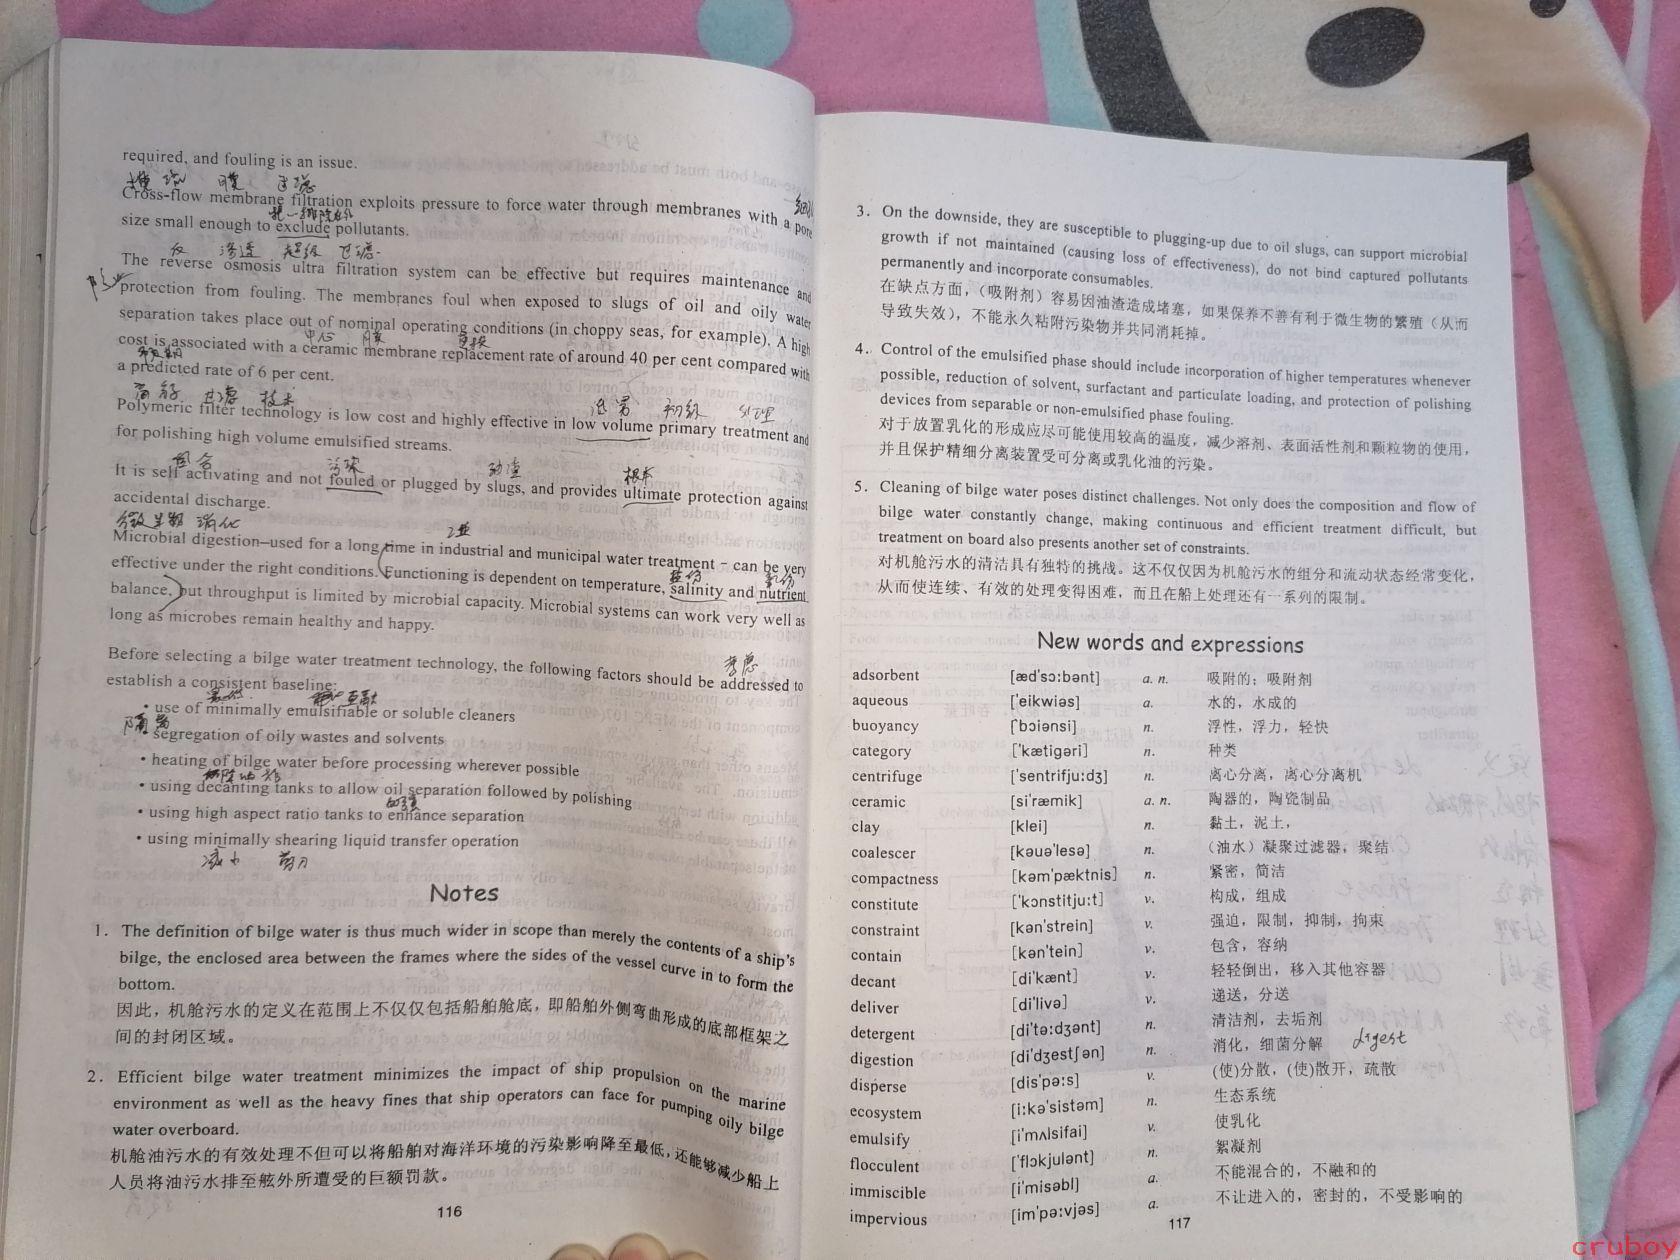 required, and fouling is an issue.
横流 膜 过滤
Cross-flow membrane filtration exploits pressure to force water through membranes with a pore
size small enough to exclude pollutants.
反 渗透 超级 过滤
The reverse osmosis ultra filtration system can be effective but requires maintenance and
protection from fouling. The membranes foul when exposed to slugs of oil and oily water
separation takes place out of nominal operating conditions (in choppy seas, for example). A high
膜 更换
cost is associated with a ceramic membrane replacement rate of around 40 per cent compared with
预期
a predicted rate of 6 per cent.
过滤 技术
初级 处理
Polymeric filter technology is low cost and highly effective in low volume primary treatment and
for polishing high volume emulsified streams.
污染 根本
It is self activating and not fouled or plugged by slugs, and provides ultimate protection against
accidental discharge.
微生物 消化
工业
Microbial digestion—used for a long time in industrial and municipal water treatment - can be very
effective under the right conditions. Functioning is dependent on temperature, salinity and nutrient
盐份
balance, but throughput is limited by microbial capacity. Microbial systems can work very well as
long as microbes remain healthy and happy.
考虑
Before selecting a bilge water treatment technology, the following factors should be addressed to
establish a consistent baseline:
• use of minimally emulsifiable or soluble cleaners
隔离
segregation of oily wastes and solvents
• heating of bilge water before processing wherever possible
• using decanting tanks to allow oil separation followed by polishing
• using high aspect ratio tanks to enhance separation
• using minimally shearing liquid transfer operation
减小 剪刀
Notes
1. The definition of bilge water is thus much wider in scope than merely the contents of a ship's
bilge, the enclosed area between the frames where the sides of the vessel curve in to form the
bottom.
因此，机舱污水的定义在范围上不仅仅包括船舶舱底，即船舶外侧弯曲形成的底部框架之
间的封闭区域。
2. Efficient bilge water treatment minimizes the impact of ship propulsion on the marine
environment as well as the heavy fines that ship operators can face for pumping oily bilge
water overboard.
机舱油污水的有效处理不但可以将船舶对海洋环境的污染影响降至最低，还能够减少船上
人员将油污水排至舷外所遭受的巨额罚款。
116
3. On the downside, they are susceptible to plugging-up due to oil slugs, can support microbial
growth if not maintained (causing loss of effectiveness), do not bind captured pollutants
permanently and incorporate consumables.
在缺点方面，（吸附剂）容易因油渣造成堵塞，如果保养不善有利于微生物的繁殖（从而
导致失效），不能永久粘附污染物并共同消耗掉。
4. Control of the emulsified phase should include incorporation of higher temperatures whenever
possible, reduction of solvent, surfactant and particulate loading, and protection of polishing
devices from separable or non-emulsified phase fouling.
对于放置乳化的形成应尽可能使用较高的温度，减少溶剂、表面活性剂和颗粒物的使用，
并且保护精细分离装置受可分离或乳化油的污染。
5. Cleaning of bilge water poses distinct challenges. Not only does the composition and flow of
bilge water constantly change, making continuous and efficient treatment difficult, but
treatment on board also presents another set of constraints.
对机舱污水的清洁具有独特的挑战。这不仅仅因为机舱污水的组分和流动状态经常变化，
从而使连续、有效的处理变得困难，而且在船上处理还有一系列的限制。
New words and expressions
adsorbent [æd'sɔ:bənt] a. n. 吸附的；吸附剂
aqueous ['eikwiəs] a. 水的，水成的
buoyancy ['bɔiənsi] n. 浮性，浮力，轻快
category ['kætigəri] n. 种类
centrifuge ['sentrifju:dʒ] n. 离心分离，离心分离机
ceramic [si'ræmik] a. n. 陶器的，陶瓷制品
clay [klei] n. 黏土，泥土，
coalescer [kəuə'lesə] n. （油水）凝聚过滤器，聚结
compactness [kəm'pæktnis] n. 紧密，简洁
constitute ['kɔnstitju:t] v. 构成，组成
constraint [kən'strein] v. 强迫，限制，抑制，拘束
contain [kən'tein] v. 包含，容纳
decant [di'kænt] v. 轻轻倒出，移入其他容器
deliver [di'livə] v. 递送，分送
detergent [di'tə:dʒənt] n. 清洁剂，去垢剂
digestion [di'dʒestʃən] n. 消化，细菌分解 digest
disperse [dis'pə:s] v. (使)分散，(使)散开，疏散
ecosystem [i:kə'sistəm] n. 生态系统
emulsify [i'mʌlsifai] v. 使乳化
flocculent ['flɔkjulənt] n. 絮凝剂
immiscible [i'misəbl] a. 不能混合的，不融和的
impervious [im'pə:vjəs] a. 不让进入的，密封的，不受影响的
117
cruboy